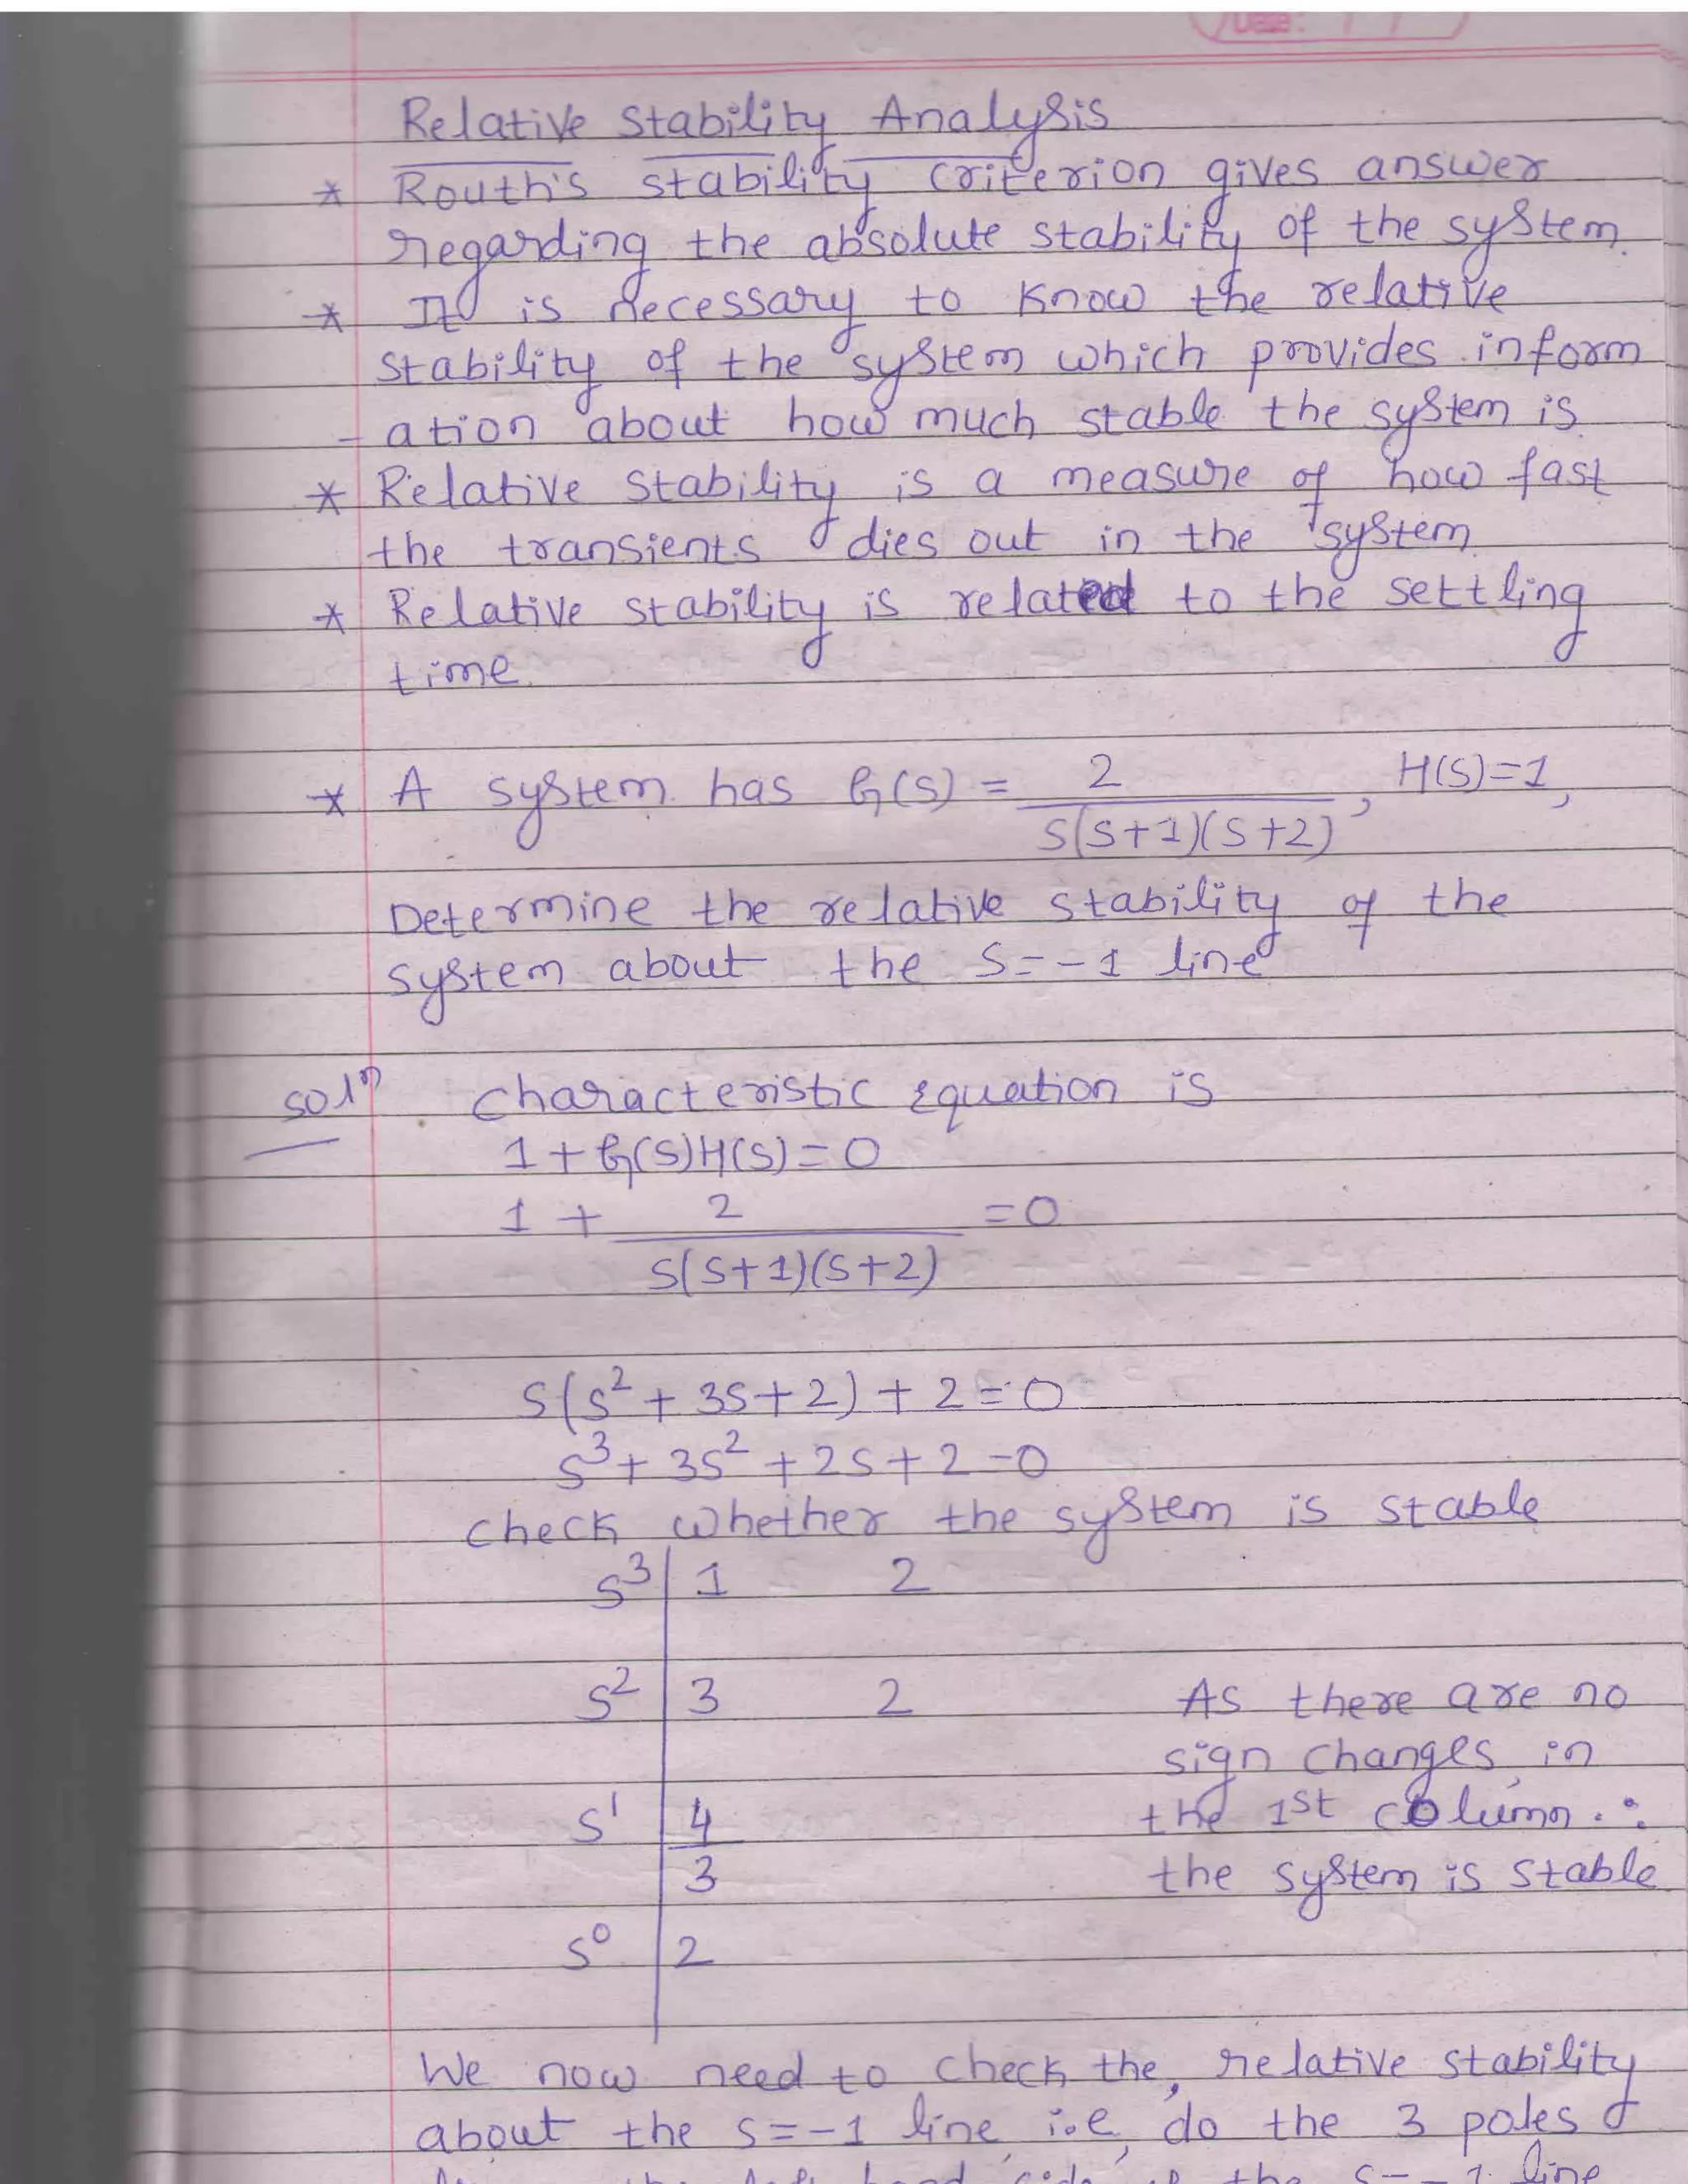 Date: / /
Relative Stability Analysis
* Routh's stability criterion gives answer
regarding the absolute stability of the system.
* It is necessary to know the relative
stability of the system which provides inform
- ation about how much stable the system is.
* Relative stability is a measure of how fast
the transients dies out in the system
* Relative stability is related to the settling
time.
* A system has G(s) = 2 / s(s+1)(s+2), H(s)=1,
Determine the relative stability of the
system about the s=-1 line
Solⁿ Characteristic Equation is
1 + G(s)H(s) = 0
1 + 2 / s(s+1)(s+2) = 0
s(s² + 3s + 2) + 2 = 0
s³ + 3s² + 2s + 2 = 0
check whether the system is stable
s³ | 1 2
s² | 3 2 As there are no
sign changes in
s¹ | 4/3 the 1st column. ∴
the system is stable
s⁰ | 2
We now need to check the, relative stability
about the s=-1 line i.e, do the 3 poles
the s=-1 line